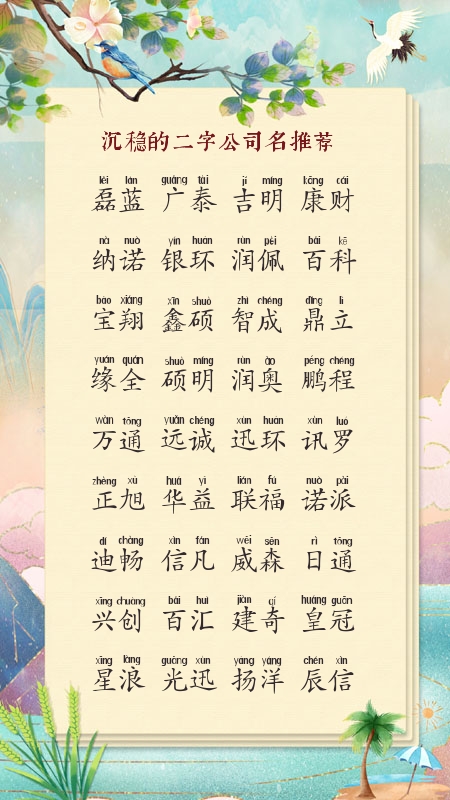 沉稳的二字公司名推荐
lěi lán guǎng tài jí míng kāng cái
磊蓝 广泰 吉明 康财
nà nuò yín huán rùn pèi bǎi kē
纳诺 银环 润佩 百科
bǎo xiáng xīn shuò zhì chéng dǐng lì
宝翔 鑫硕 智成 鼎立
yuán quán shuò míng rùn ào péng chéng
缘全 硕明 润奥 鹏程
wàn tōng yuǎn chéng xùn huán xùn luó
万通 远诚 迅环 讯罗
zhèng xù huá yì lián fú nuò pài
正旭 华益 联福 诺派
dí chàng xìn fán wēi sēn rì tōng
迪畅 信凡 威森 日通
xīng chuàng bǎi huì jiàn qí huáng guān
兴创 百汇 建奇 皇冠
xīng làng guāng xùn yáng yáng chén xìn
星浪 光迅 扬洋 辰信